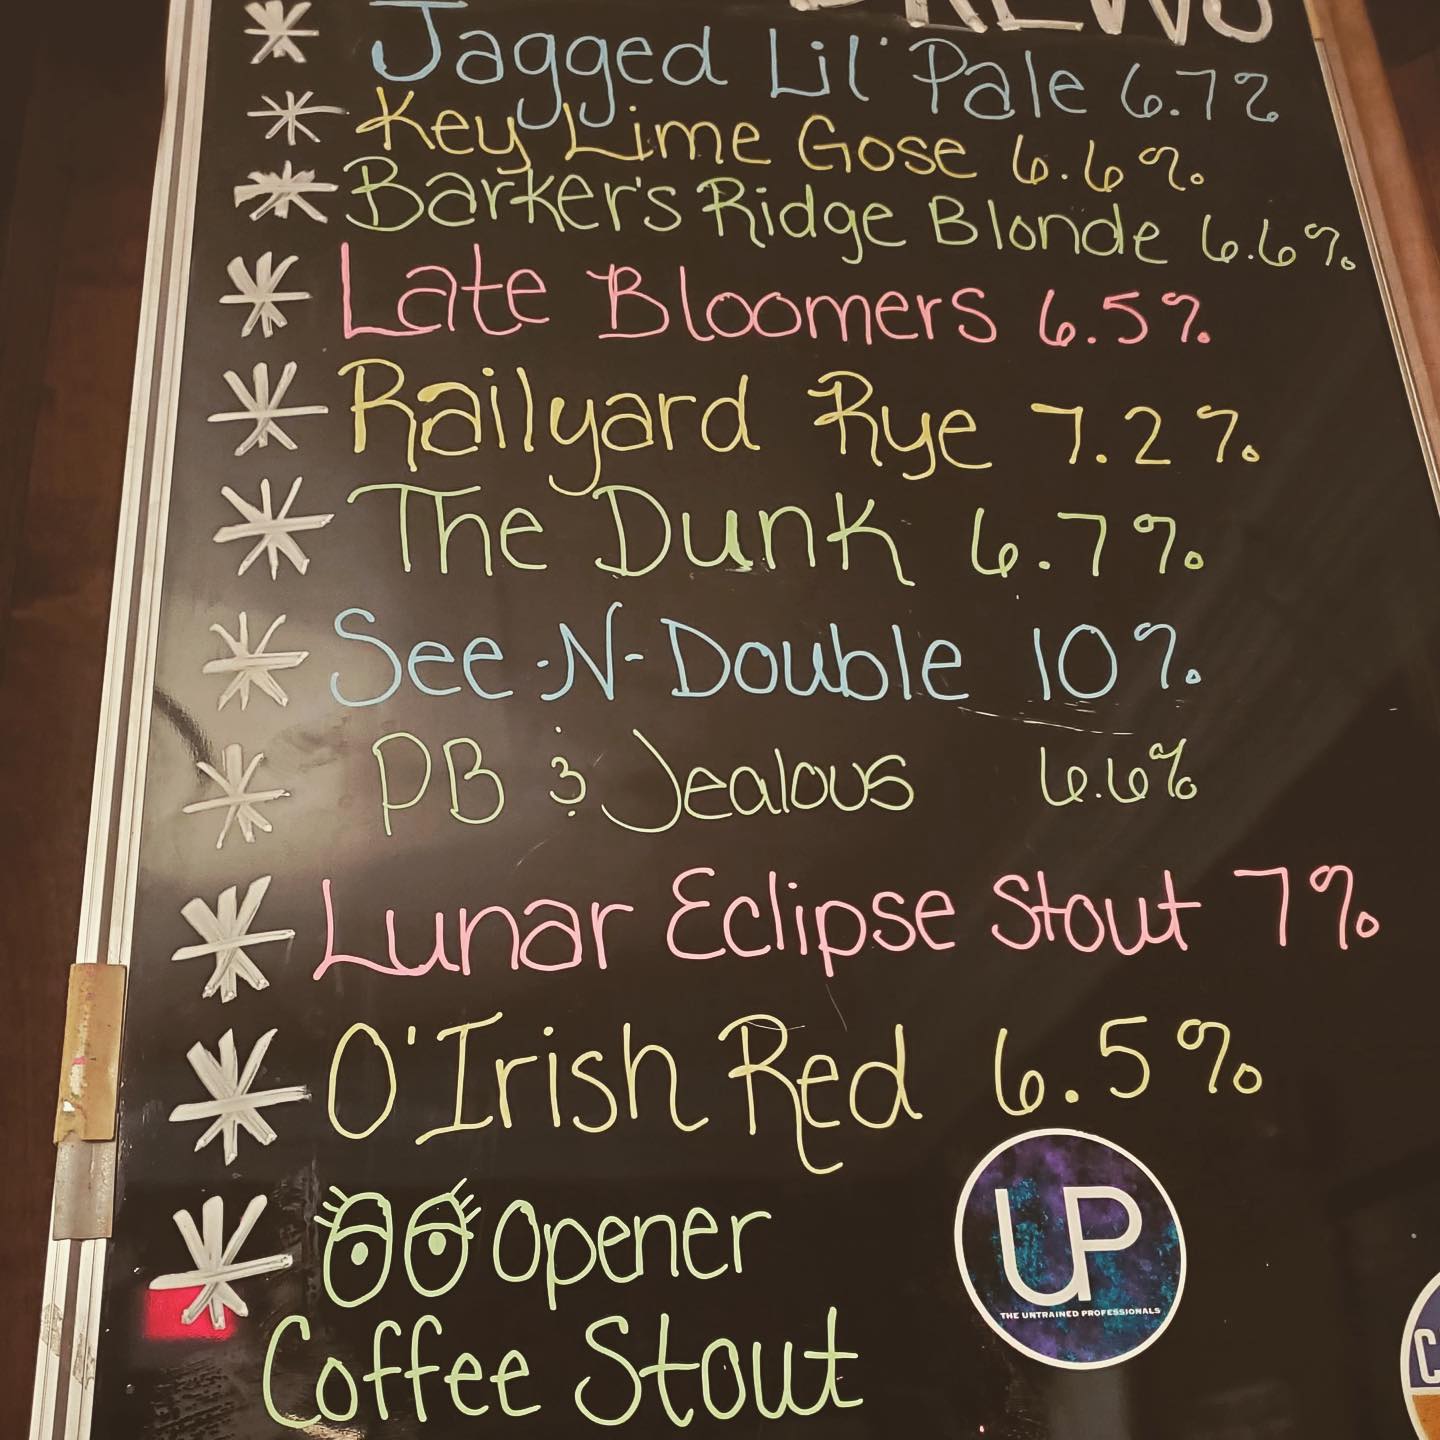 BREWS
* Jagged Lil' Pale 6.7%
* Key Lime Gose 6.6%
* Barker's Ridge Blonde 6.6%
* Late Bloomers 6.5%
* Railyard Rye 7.2%
* The Dunk 6.7%
* See-N-Double 10%
* PB & Jealous 6.6%
* Lunar Eclipse Stout 7%
* O'Irish Red 6.5%
* Opener
Coffee Stout
UP
THE UNTRAINED PROFESSIONALS